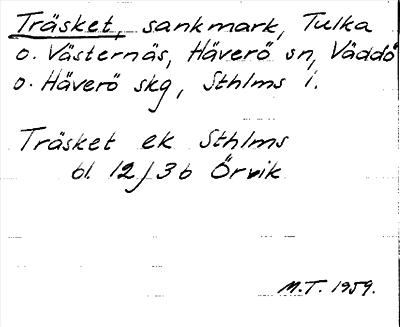 Träsket, sankmark, Tulka
o. Västernäs, Häverö sn, Väddö
o. Häverö skg, Sthlms l.
Träsket ek Sthlms
bl. 12/3b Örvik
M.T. 1959.